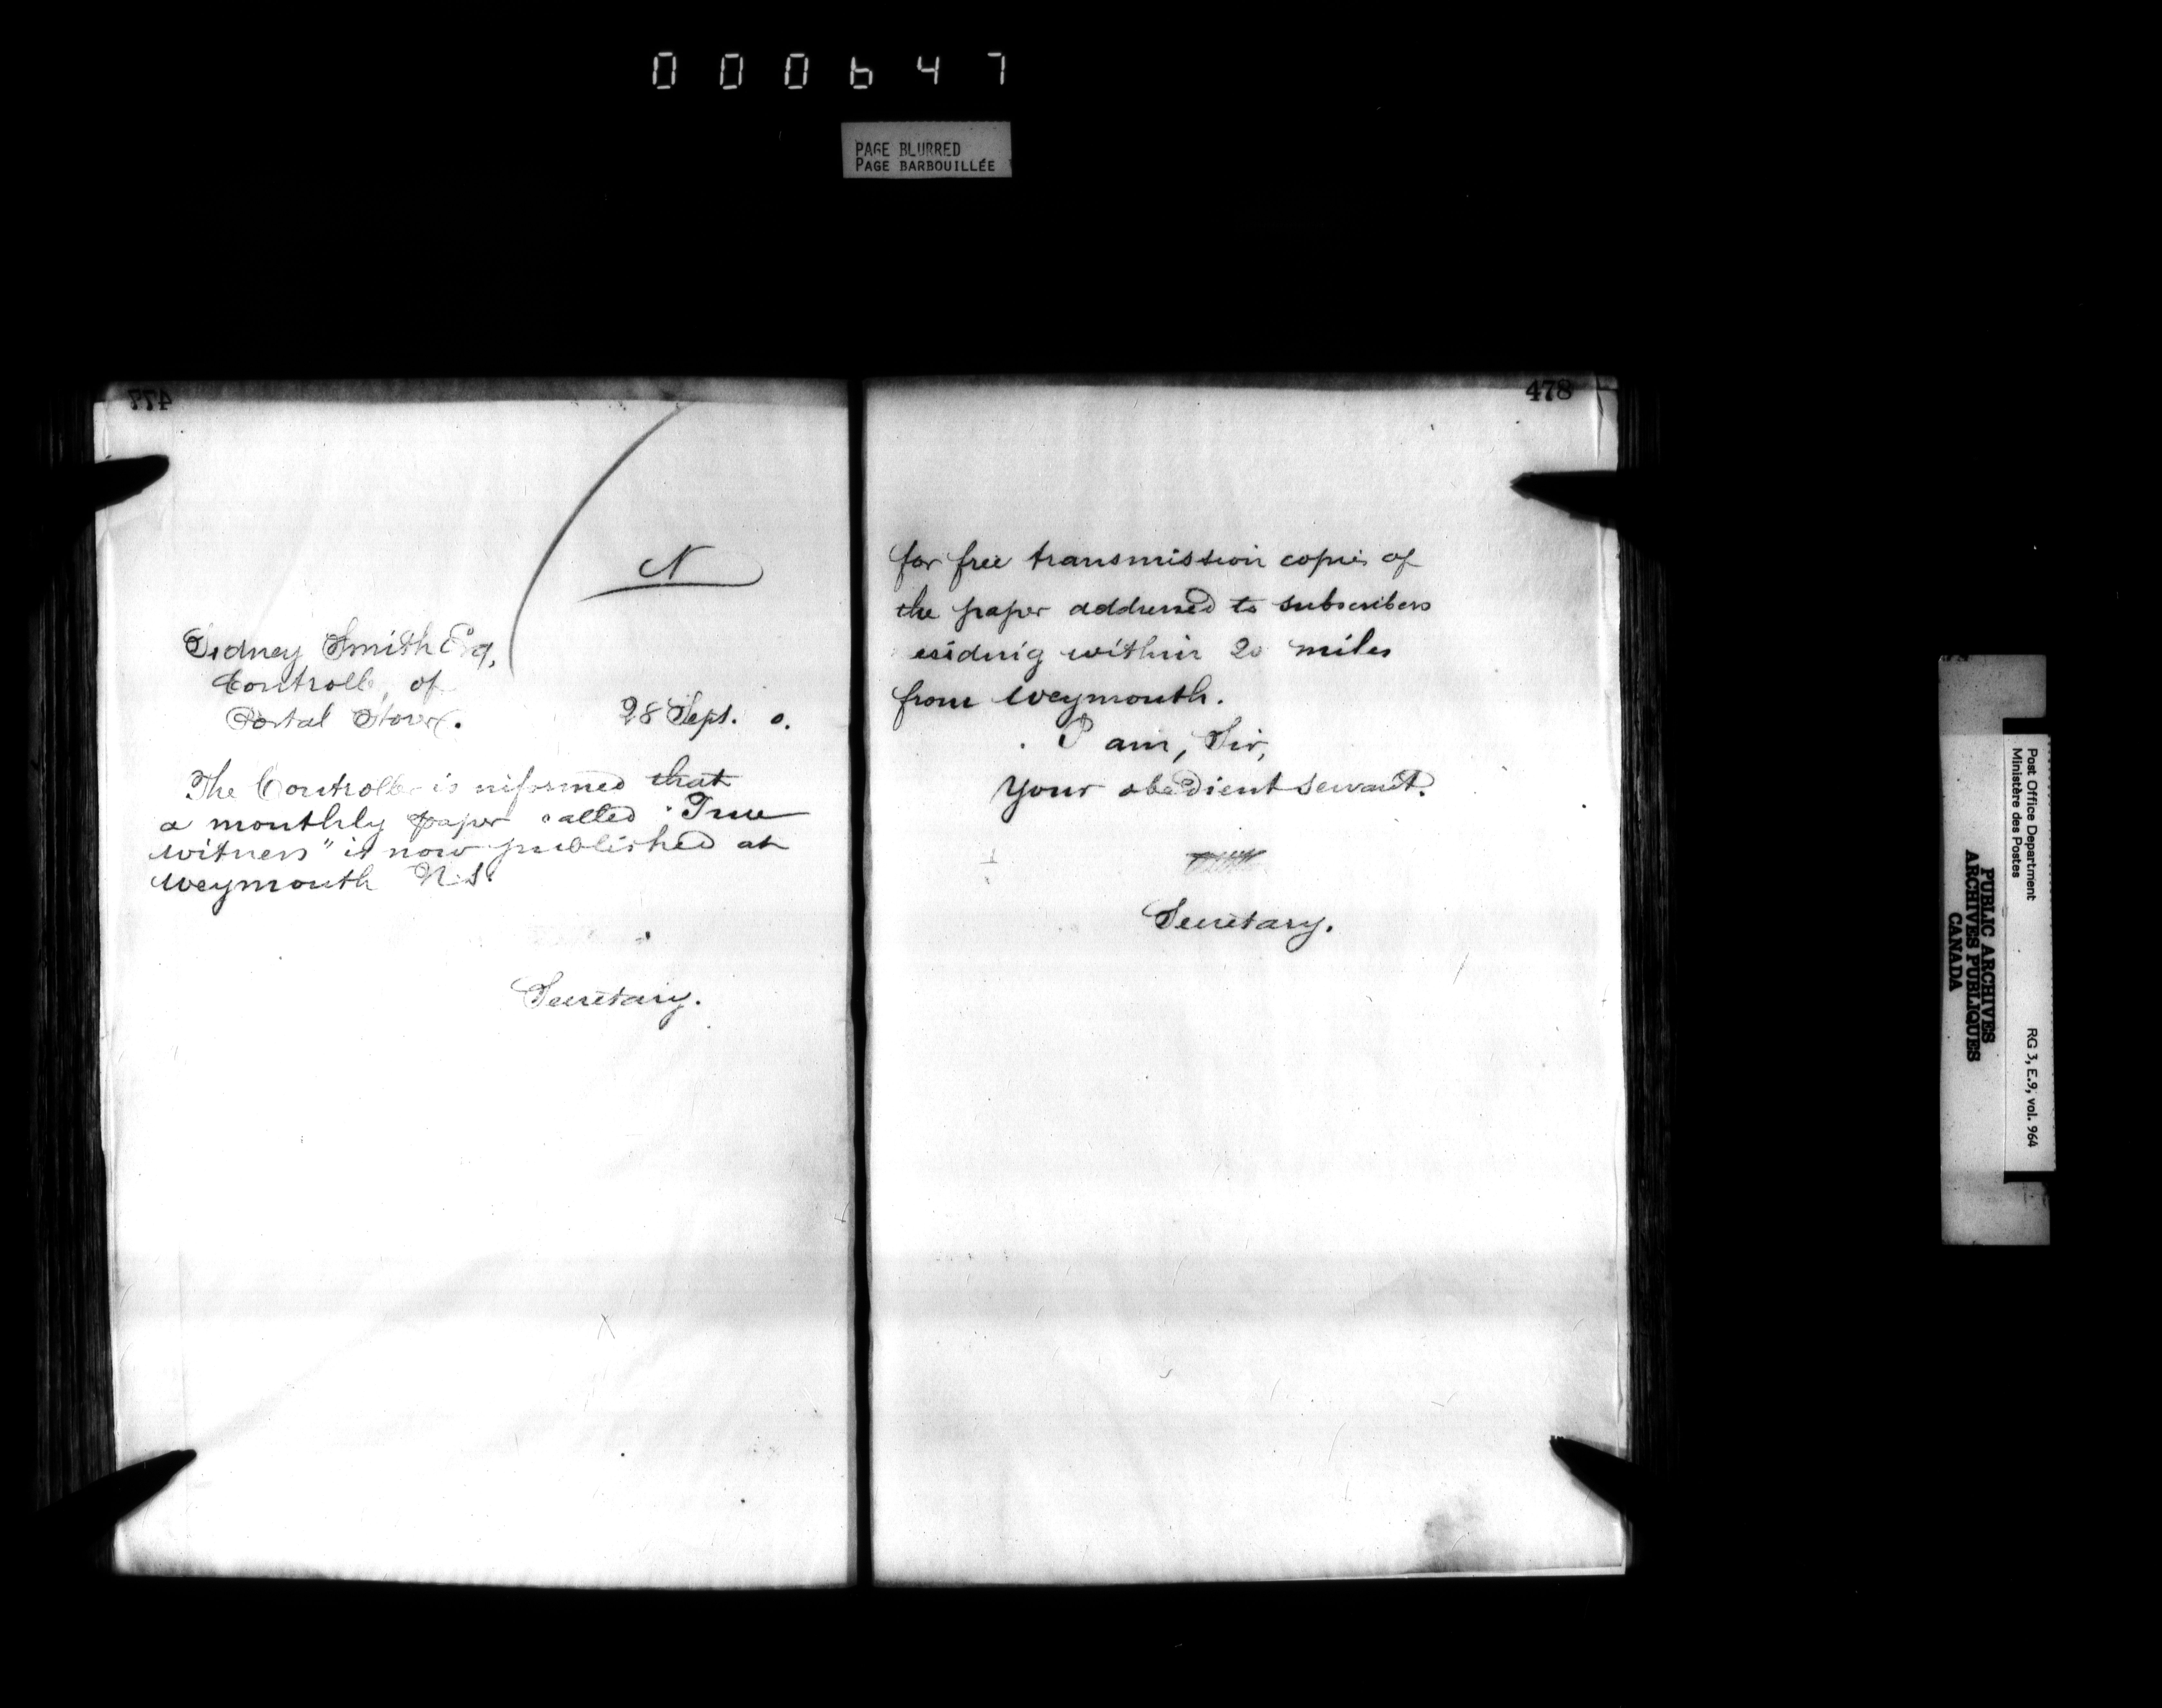 000647
PAGE BLURRED
PAGE BARBOUILLÉE
477
N
Sidney Smith Esq,
Controller of
Postal Stores.
28 Sept. 0.
The Controller is informed that
a monthly paper called "True
Witness" is now published at
Weymouth N.S.
Secretary.
478
for free transmission copies of
the paper addressed to subscribers
esiding within 20 miles
from Weymouth.
I am, Sir,
Your obedient servant.
Secretary.
Post Office Department
Ministère des Postes
RG 3, E.9, vol. 964
PUBLIC ARCHIVES
ARCHIVES PUBLIQUES
CANADA